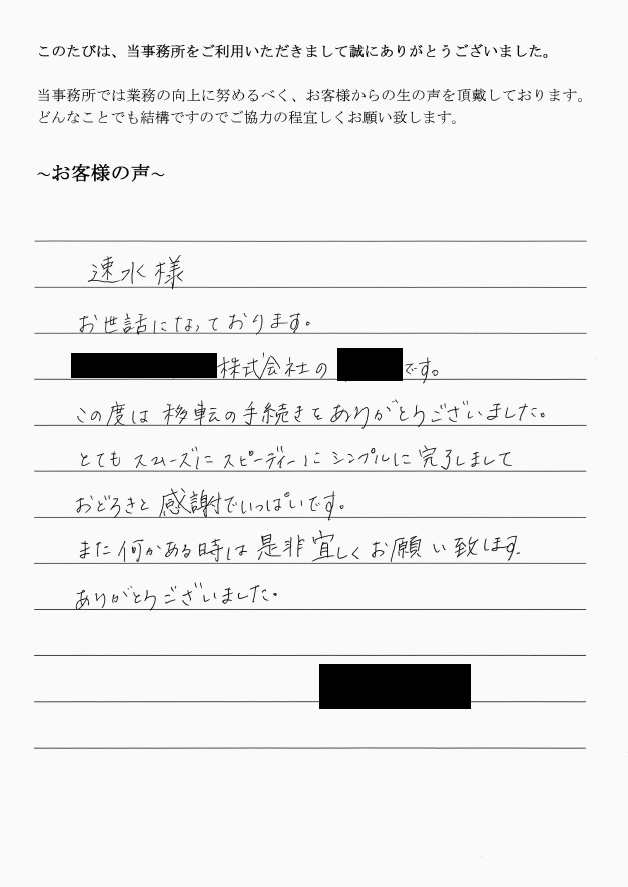 このたびは、当事務所をご利用いただきまして誠にありがとうございました。
当事務所では業務の向上に努めるべく、お客様からの生の声を頂戴しております。
どんなことでも結構ですのでご協力の程宜しくお願い致します。
~お客様の声~
速水様
お世話になっております。
株式会社の です。
この度は移転の手続きをありがとうございました。
とてもスムーズにスピーディーにシンプルに完了しまして
おどろきと感謝でいっぱいです。
また何かある時は是非宜しくお願い致します。
ありがとうございました。